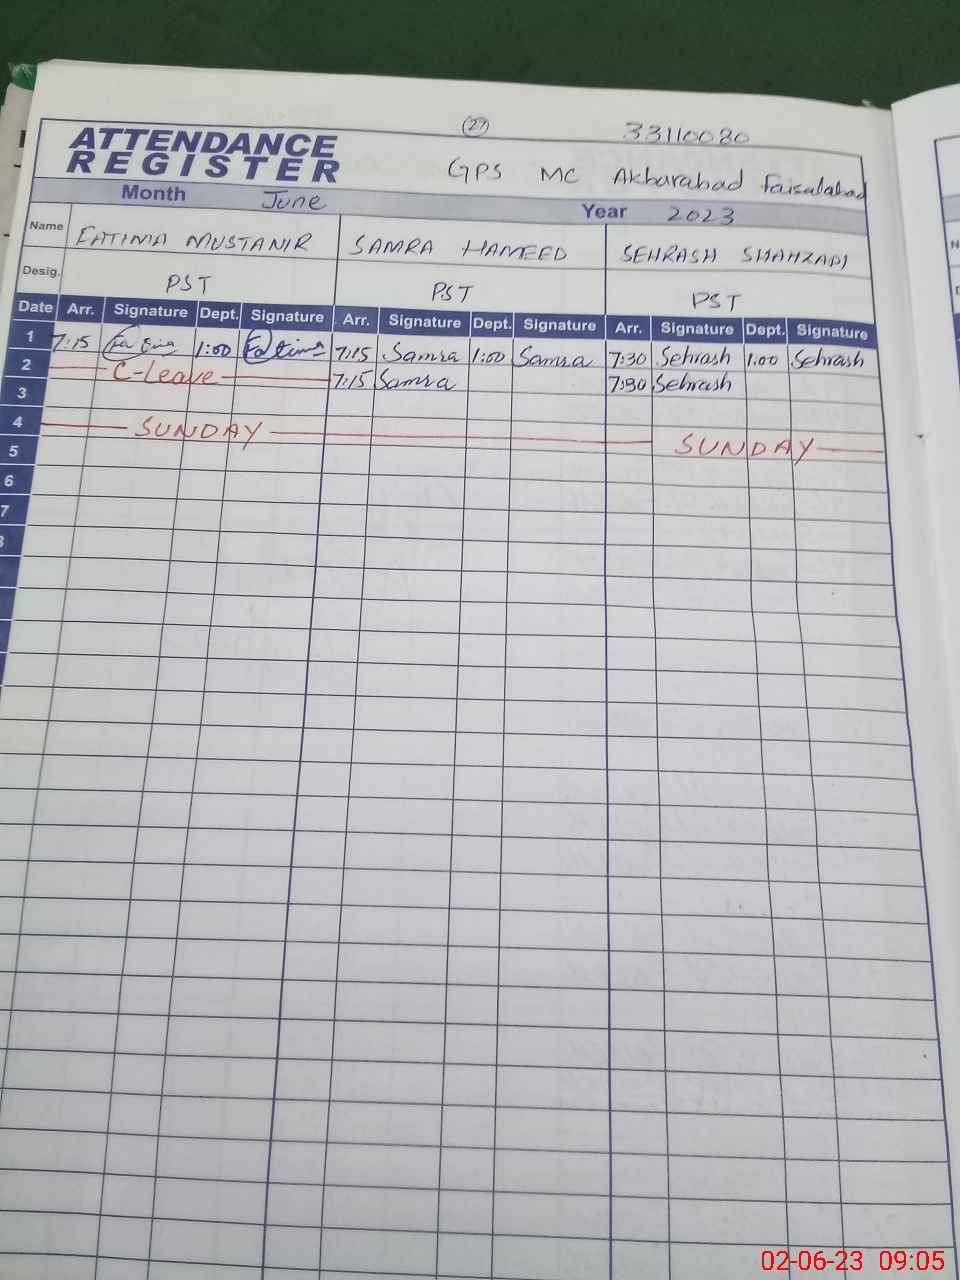 (27) 33110080
ATTENDANCE
REGISTER
GPS MC Akbarabad Faisalabad
Month June Year 2023
Name FATIMA MUSTANIR SAMRA HAMEED SEHRASH SHAHZADI
Desig. PST PST PST
Date Arr. Signature Dept. Signature Arr. Signature Dept. Signature Arr. Signature Dept. Signature
1 7:15 Fatima 1:00 Fatima 7:15 Samra 1:00 Samra 7:30 Sehrash 1:00 Sehrash
2 C-Leave 7:15 Samra 7:30 Sehrash
3
4 SUNDAY SUNDAY
5
6
7
8
02-06-23 09:05